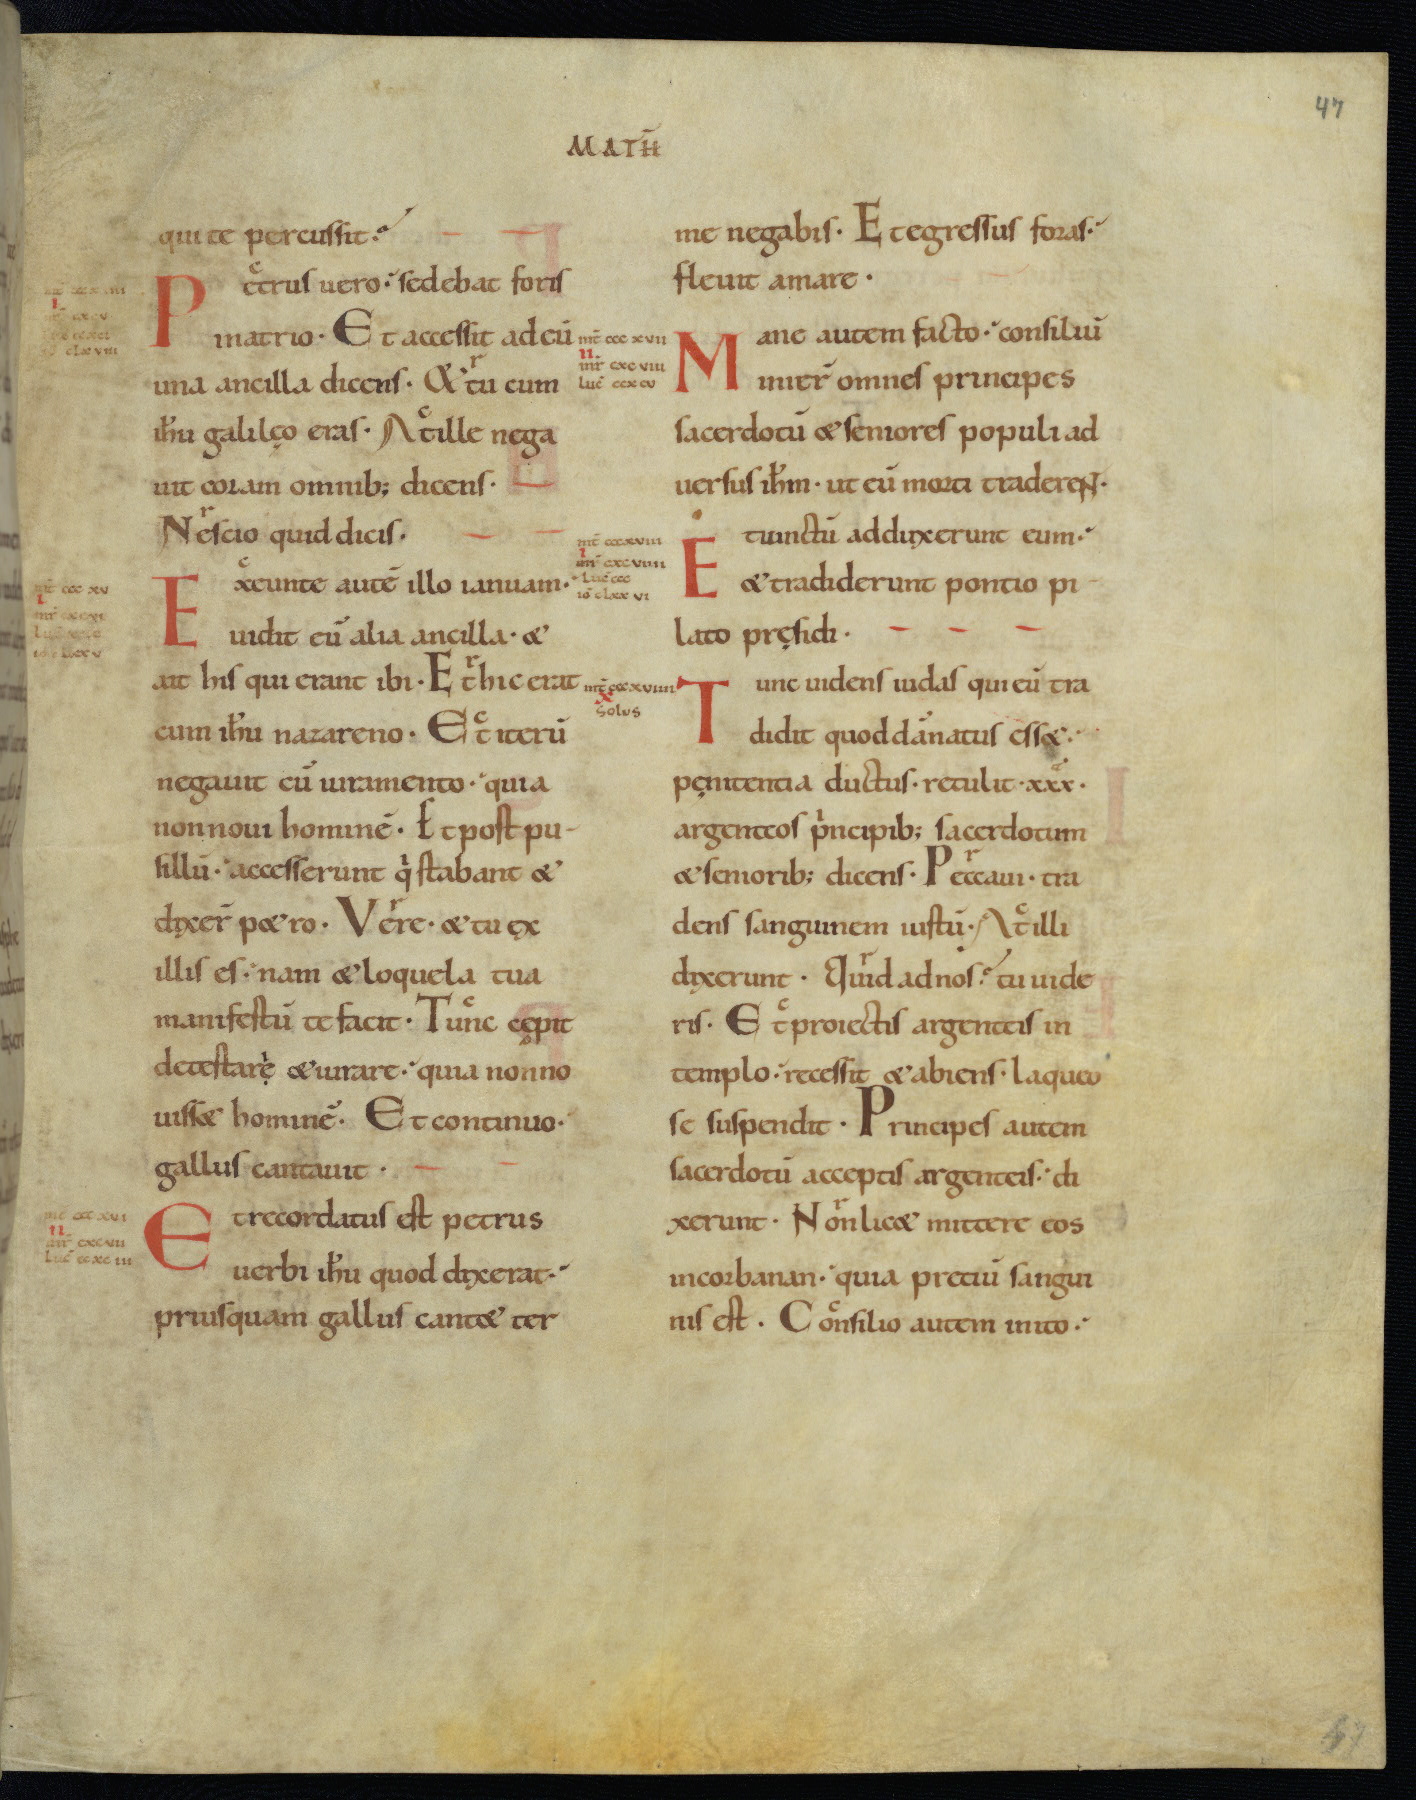 47
MATH̄
qui te percussit.
Petrus uero. sedebat foris
in atrio. Et accessit ad eū
una ancilla dicens. & tu cum
ihu galilęo eras. At ille nega
uit coram omnib; dicens.
Nescio quid dicis.
Exeunte autē illo ianuam.
uidit eū alia ancilla. &
ait his qui erant ibi. Et hic erat
cum ihu nazareno. Et iterū
negauit eū iuramento. quia
non noui hominē. Et post pu-
sillū. accesserunt q stabant &
dixer̄ p&ro. Vere. & tu ex
illis es. nam & loquela tua
manifestū te facit. Tunc cępit
detestare & iurare. quia non no
uiss& hominē. Et continuo.
gallus cantauit.
Et recordatus est petrus
uerbi ihu quod dixerat.
priusquam gallus cant& ter
mt̄ ccc xv
i
mt̄ ccc xvi
ii
mr̄ cxc vii
luc̄ cc xc iii
me negabis. Et egressus foras.
fleuit amare.
Mane autem facto. consiliū
inier̄ omnes principes
sacerdotū & seniores populi ad
uersus ihm. ut eū morti traderent.
Et uinctū adduxerunt eum.
& tradiderunt pontio pi-
lato pręsidi.
Tunc uidens iudas qui eū tra
didit quod dānatus ess&.
pęnitentia ductus. retulit. xxx.
argenteos pncipib; sacerdotum
& seniorib; dicens. Peccaui. tra
dens sanguinem iustū. At illi
dixerunt. Quid ad nos. tu uide
ris. Et proiectis argenteis in
templo. recessit & abiens. laqueo
se suspendit. Principes autem
sacerdotū acceptis argenteis. di
xerunt. Non lic& mittere eos
in corbanan. quia preciū sangui
nis est. Consilio autem inito.
mt̄ ccc xvii
ii
mr̄ cxc viii
luc̄ ccxcv
mt̄ ccc xviii
i
mr̄ cxc viiii
luc̄ ccc
io clxx vi
mt̄ ccc xviiii
x
Solus